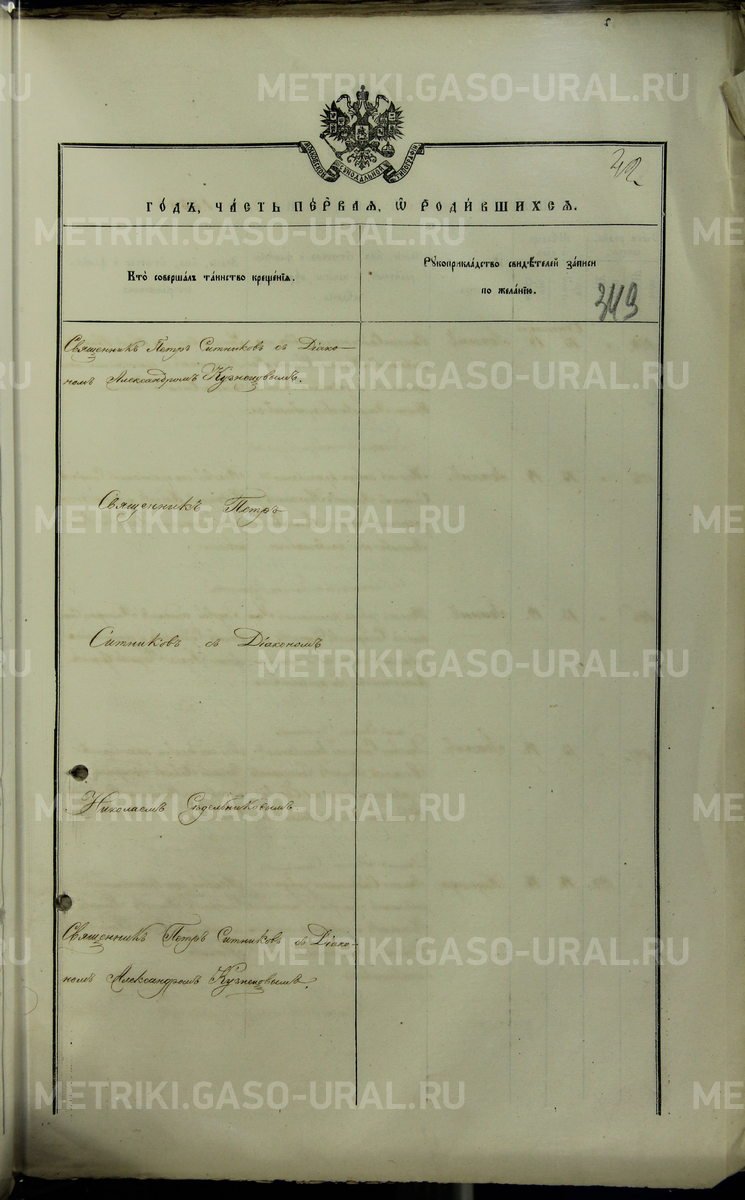 METRIKI.GASO-URAL.RU
МОСКОВСКОЙ СѴНОДАЛЬНОЙ ТИПОГРАФІИ
42
го́дъ, ча́сть пе́рваѧ, ѡ҆ роди́вшихсѧ.
Кто̀ соверша́лъ та́инство креще́нїѧ.
Рꙋкоприкла́дство свидѣ́телей за́писи
по жела́нїю.
349
Священникъ Петръ Ситниковъ съ Діако-
номъ Александромъ Кузнецовымъ.
Священникъ Петръ
Ситниковъ съ Діакономъ
Николаемъ Сѣдельниковымъ
Священникъ Петръ Ситниковъ съ Діако-
номъ Александромъ Кузнецовымъ.